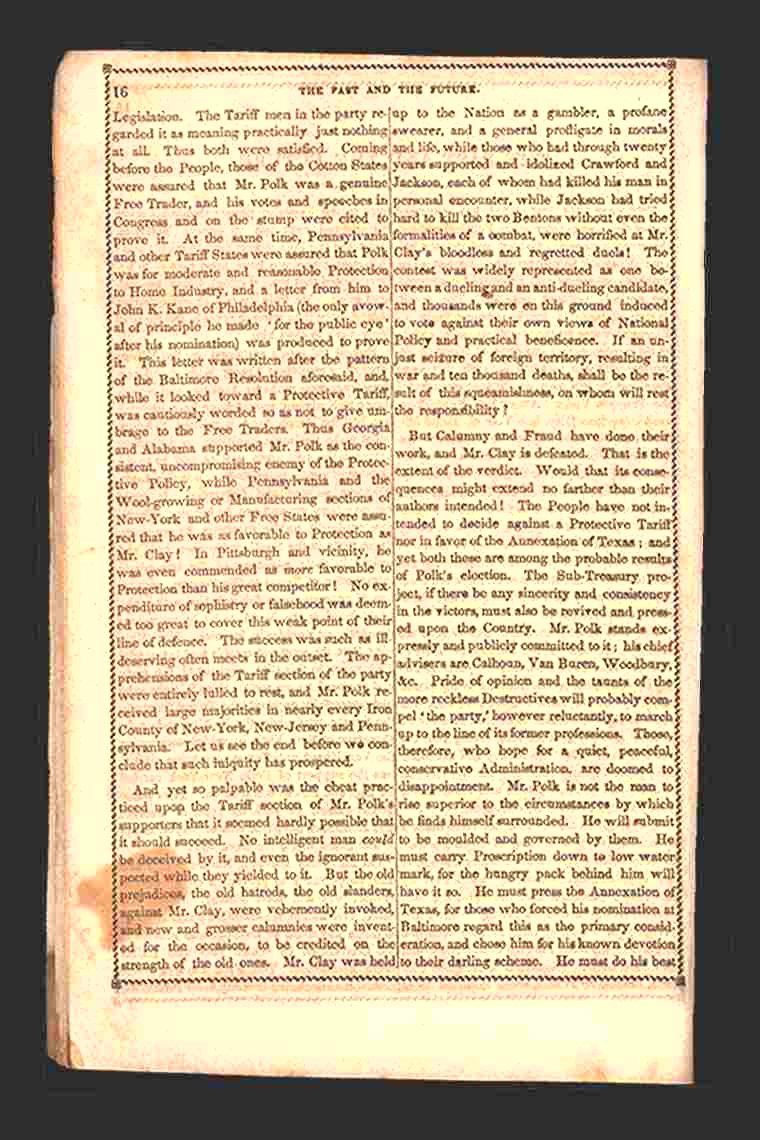 16
THE PAST AND THE FUTURE.
Legislation. The Tariff men in the party re-
garded it as meaning practically just nothing
at all. Thus both were satisfied. Coming
before the People, those of the Cotton States
were assured that Mr. Polk was a genuine
Free Trader, and his votes and speeches in
Congress and on the stump were cited to
prove it. At the same time, Pennsylvania
and other Tariff States were assured that Polk
was for moderate and reasonable Protection
to Home Industry, and a letter from him to
John K. Kane of Philadelphia (the only avow-
al of principle he made 'for the public eye'
after his nomination) was produced to prove
it. This letter was written after the pattern
of the Baltimore Resolution aforesaid, and,
while it looked toward a Protective Tariff,
was cautiously worded so as not to give um-
brage to the Free Traders. Thus Georgia
and Alabama supported Mr. Polk as the con-
sistent, uncompromising enemy of the Protec-
tive Policy, while Pennsylvania and the
Wool-growing or Manufacturing sections of
New-York and other Free States were assu-
red that he was as favorable to Protection as
Mr. Clay! In Pittsburgh and vicinity, he
was even commended as more favorable to
Protection than his great competitor! No ex-
penditure of sophistry or falsehood was deem-
ed too great to cover this weak point of their
line of defence. The success was such as ill
deserving often meets in the outset. The ap-
prehensions of the Tariff section of the party
were entirely lulled to rest, and Mr. Polk re-
ceived large majorities in nearly every Iron
County of New-York, New-Jersey and Penn-
sylvania. Let us see the end before we con-
clude that such iniquity has prospered.
And yet so palpable was the cheat prac-
ticed upon the Tariff section of Mr. Polk's
supporters that it seemed hardly possible that
it should succeed. No intelligent man could
be deceived by it, and even the ignorant sus-
pected while they yielded to it. But the old
prejudices, the old hatreds, the old slanders,
against Mr. Clay, were vehemently invoked,
and new and grosser calumnies were invent-
ed for the occasion, to be credited on the
strength of the old ones. Mr. Clay was held
up to the Nation as a gambler, a profane
swearer, and a general profligate in morals
and life, while those who had through twenty
years supported and idolized Crawford and
Jackson, each of whom had killed his man in
personal encounter, while Jackson had tried
hard to kill the two Bentons without even the
formalities of a combat, were horrified at Mr.
Clay's bloodless and regretted duels! The
contest was widely represented as one be-
tween a dueling and an anti-dueling candidate,
and thousands were on this ground induced
to vote against their own views of National
Policy and practical beneficence. If an un-
just seizure of foreign territory, resulting in
war and ten thousand deaths, shall be the re-
sult of this squeamishness, on whom will rest
the responsibility?
But Calumny and Fraud have done their
work, and Mr. Clay is defeated. That is the
extent of the verdict. Would that its conse-
quences might extend no farther than their
authors intended! The People have not in-
tended to decide against a Protective Tariff
nor in favor of the Annexation of Texas; and
yet both these are among the probable results
of Polk's election. The Sub-Treasury pro-
ject, if there be any sincerity and consistency
in the victors, must also be revived and press-
ed upon the Country. Mr. Polk stands ex-
pressly and publicly committed to it; his chief
advisers are Calhoun, Van Buren, Woodbury,
&c. Pride of opinion and the taunts of the
more reckless Destructives will probably com-
pel 'the party,' however reluctantly, to march
up to the line of its former professions. Those,
therefore, who hope for a quiet, peaceful,
conservative Administration, are doomed to
disappointment. Mr. Polk is not the man to
rise superior to the circumstances by which
he finds himself surrounded. He will submit
to be moulded and governed by them. He
must carry Proscription down to low water
mark, for the hungry pack behind him will
have it so. He must press the Annexation of
Texas, for those who forced his nomination at
Baltimore regard this as the primary consid-
eration, and chose him for his known devotion
to their darling scheme. He must do his best